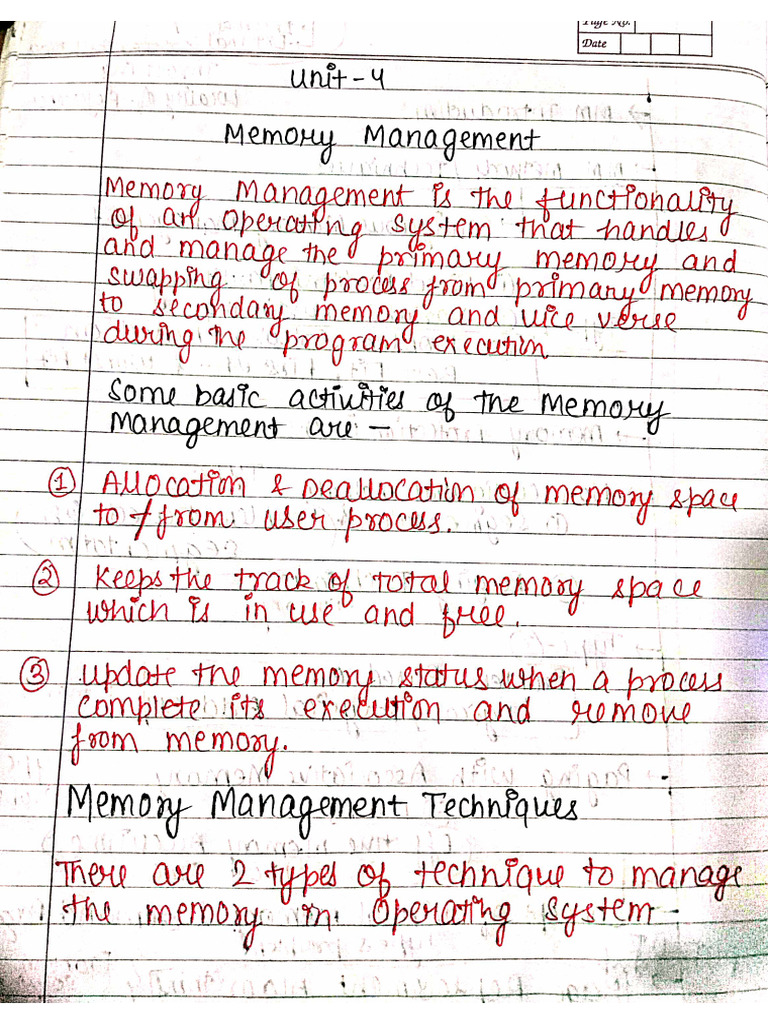 Page No.
Date
Unit - 4
Memory Management
Memory Management is the functionality
of an operating system that handles
and manage the primary memory and
swapping of process from primary memory
to secondary memory and vice verse
during the program execution
Some basic activities of the Memory
Management are -
① Allocation & Deallocation of memory space
to/from user process.
② Keeps the track of total memory space
which is in use and free.
③ Update the memory status when a process
complete its execution and remove
from memory.
Memory Management Techniques
There are 2 types of technique to manage
the memory in operating system -